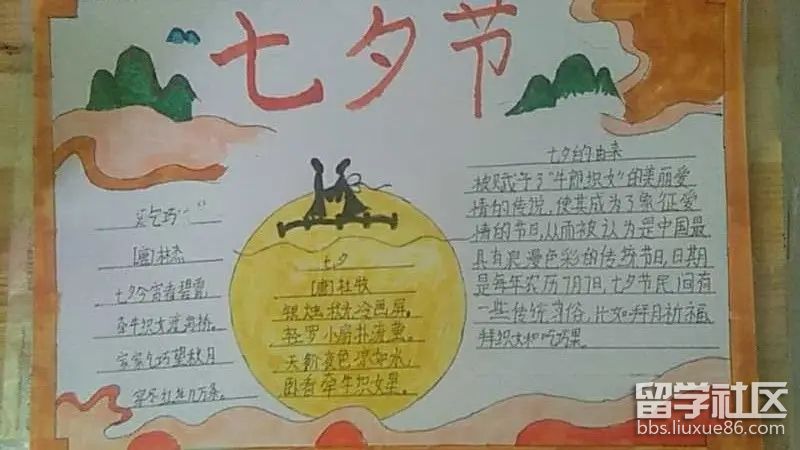 七夕节
乞巧
[唐]林杰
七夕今宵看碧霄
牵牛织女渡河桥。
家家乞巧望秋月
穿尽红丝几万条。
七夕
[唐]杜牧
银烛秋光冷画屏。
轻罗小扇扑流萤。
天阶夜色凉如水，
卧看牵牛织女星。
七夕的由来
被赋予了“牛郎织女”的美丽爱
情的传说，使其成为了象征爱
情的节日，从而被认为是中国最
具有浪漫色彩的传统节日，日期
是每年农历7月7日，七夕节民间有
一些传统习俗，比如拜月祈福
拜织女和吃巧果。
留学社区
bbs.liuxue86.com